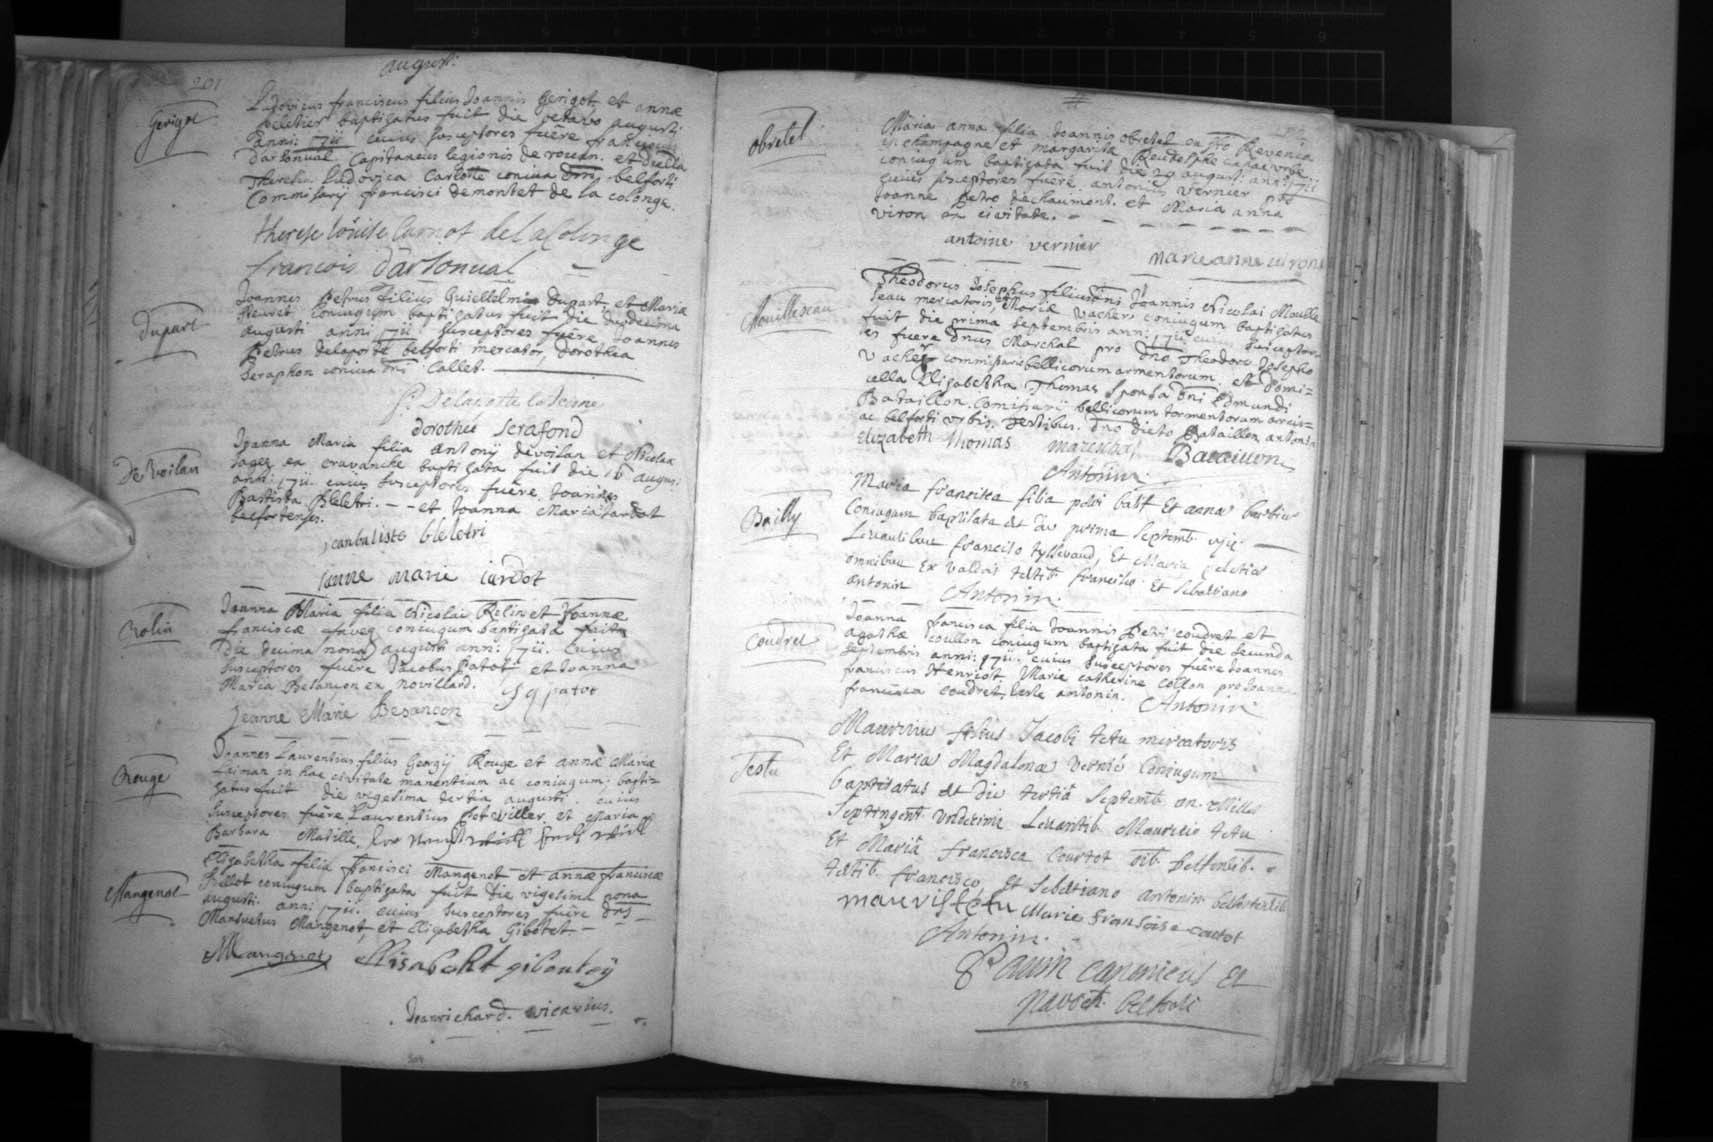 201
august:
Gerigot
Ludovicus franciscus filius Joannis Gerigot et annæ
pelletier baptizatus fuit die octavo augusti
anni: 1711 cuius susceptores fuêre franciscus
Darsonual Capitaneus legionis de rouen. et d
Theresia Ludovica Carnotte coniux dni belforti
Commissarij francisci demontet de la colonge.
therese lôuise Carnot de la Colonge
francois Darsonual
Dupart
Joannes Petrus filius Guillelmi Dupart et Mariæ
Heuret coniugum baptizatus fuit die duodecima
augusti anni 1711 susceptores fuêre Joannes
Petrus delaporte belforti mercator, dorothea
Seraphon coniux dni Callet.
P. Delaporte le Jeune
dorothee Serafond
De Voilan
Joanna Maria filia Antonij devoilan et Nicolaæ
Sagez ex cravanche baptizata fuit die 16 augus:
anni: 1711. cuius susceptores fuêre Joannes
Baptista Bleletri. - - et Joanna Maria Jardot
belfortenses.
janbatiste bleletri
janne marie iardot
Rolin
Joanna Maria filia Nicolai Rolin et Joannæ
franciscæ coniugum baptizata fuit
Die decima nona augusti ann: 1711. Cuius
susceptores fuêre Jacobus patot et Joanna
Maria Besancon ex novillard.
J J patot
Jeanne Marie Besancon
Rouge
Joannes Laurentius filius Georgij Rouge et annæ Mariæ
Leiman in hac civitate manentium ac coniugum; bapti=
zatus fuit die vigesima tertia augusti. cuius
susceptores fuêre Laurentius Hotviller et Maria
Barbara Matille.
Mangenot
Elisabetha filia francisci Mangenot et annæ franciscæ
Billot coniugum baptizata fuit die vigesima nona
augusti. ann: 1711. cuius susceptores fuêre dns
Mansuetus Mangenot, et Elisabetha Gibotet -
M Mangenot Elisabeht giboutey
Jeanrichard. vicarius.
204
obretel
Maria anna filia Joannis obretel ex pro Revenia
en champagne et margaritæ
coniugum baptizata fuit die 29 august: ann: 1711
cuius susceptores fuêre. antonius vernier pro
Joanne Petro dechaumont. et Maria anna
viron ex civitate.
antoine vernier
marie anne viron
Mouilleseau
Theodorus Josephus filius dni Joannis Nicolai Mouille
seau mercatoris, et Mariæ Vacher coniugum baptizatus
fuit die prima septembris ann: 1711 cuius susceptor=
es fuere dnus Marchal pro dno Theodoro Josepho
Vacher commissario bellicorum armentorum. et Domi=
cella Elizabetha Thomas sponsa dni Edmundi
Bataillon. Comissarij bellicorum tormentorum arcis=
ac belforti urbis. Testibus. dno dicto Bataillon antonin
Elizabeth thomas mareschal Bataillon
Antonin
Bailly
Maria francisca filia pauli balÿ Et annæ barbier
Coniugum baptisata est die prima Septemb. 1711
Levantibus Francisco tysserand, Et Maria
omnibus Ex valdoi testib. francisco Et Sebastiano
antonin Antonin.
Coudret
Joanna francisca filia Joannis Petri coudret et
agathæ coullon coniugum baptizata fuit die secunda
septembris anni: 1711. cuius susceptores fuêre Joannes
franciscus Henriot Marie catherine Collon pro Joanna
francisca coudret, teste antonin. Antonin
Testu
Mauritius filius Jacobi tetu mercatoris
Et Mariæ Magdalenæ vernié Coniugum
baptisatus est die tertiâ Septemb. an. Mille
Septingent. undecimo Levantib. Mauritio tetu
Et Mariâ francisca Courtot oib. Belfortib.
testib. francisco, Et Sebastiano antonin belfortensib.
mauris tetu Marie Fransoise cortot
Antonin.
Pauin canonicus Et
Paroch. Belforti
205